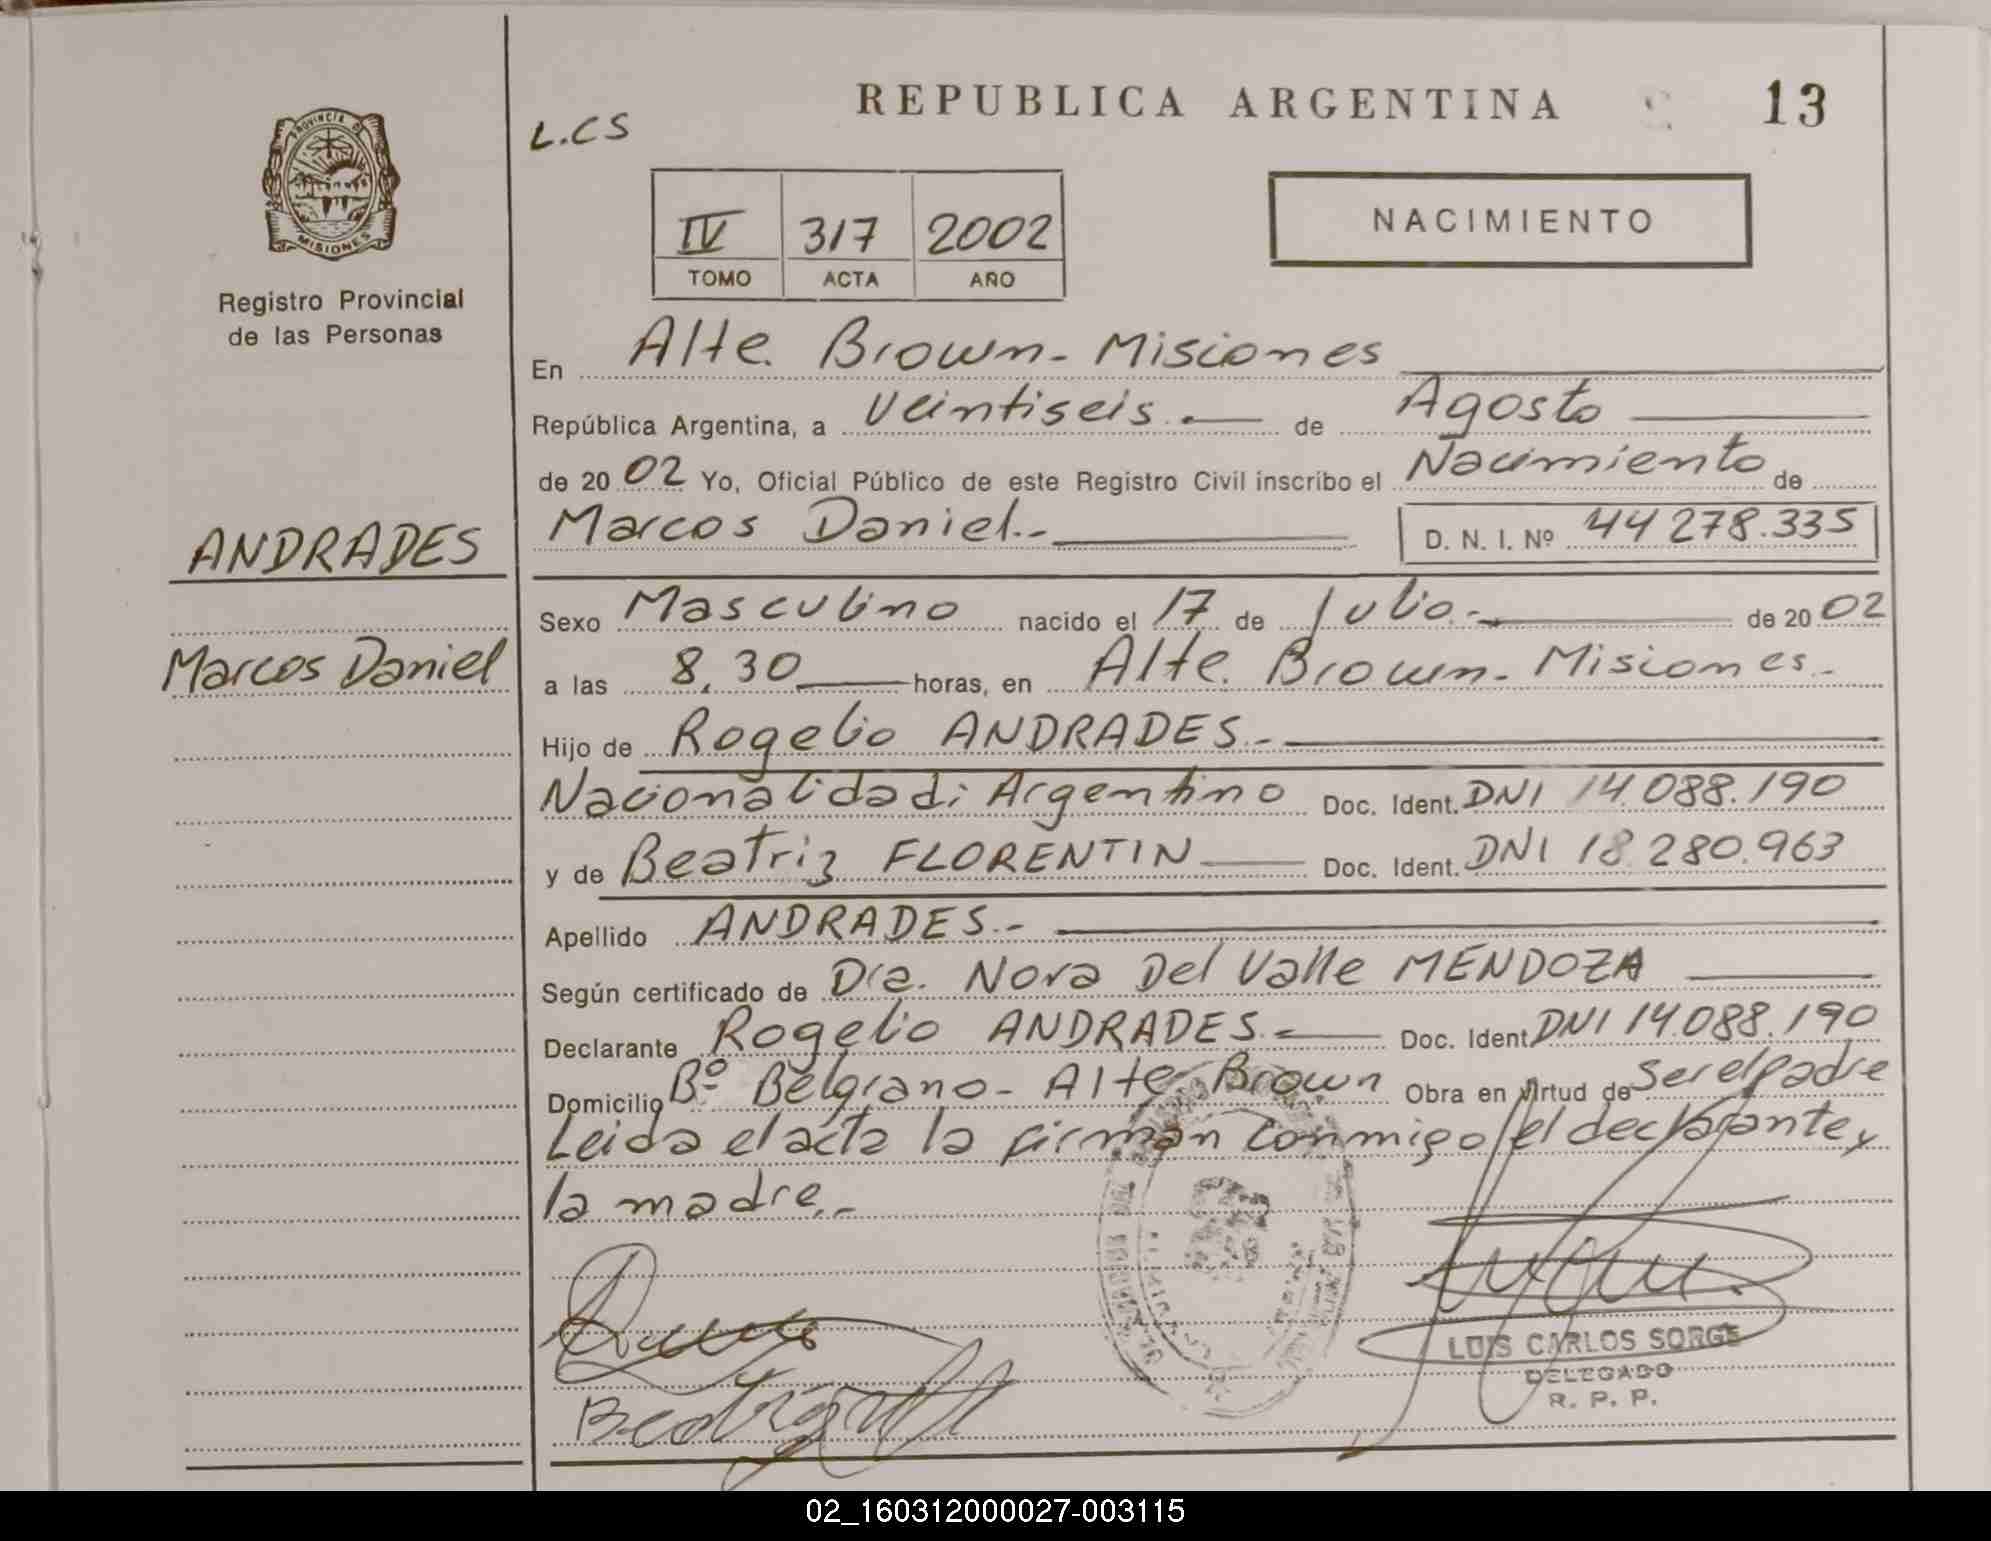 REPUBLICA ARGENTINA 13
L.CS
PROVINCIA DE
MISIONES
Registro Provincial
de las Personas
IV 317 2002
TOMO ACTA AÑO
NACIMIENTO
En Alte. Brown - Misiones
República Argentina, a Veintiseis.- de Agosto
de 20 02 Yo, Oficial Público de este Registro Civil inscribo el Nacimiento de
Marcos Daniel.- D. N. I. Nº 44 278.335
ANDRADES
Marcos Daniel
Sexo Masculino nacido el 17 de Julio.- de 20 02
a las 8,30 horas, en Alte. Brown - Misiones.-
Hijo de Rogelio ANDRADES.-
Nacionalidad: Argentino Doc. Ident. DNI 14.088.190
y de Beatriz FLORENTIN Doc. Ident. DNI 18.280.963
Apellido ANDRADES.-
Según certificado de Dra. Nora Del Valle MENDOZA
Declarante Rogelio ANDRADES.- Doc. Ident. DNI 14.088.190
Domicilio Bº Belgrano - Alte Brown Obra en virtud de Ser el padre
Leida el acta la firman conmigo el declarante y
la madre.-
LUIS CARLOS SORGE
DELEGADO
R. P. P.
02_160312000027-003115